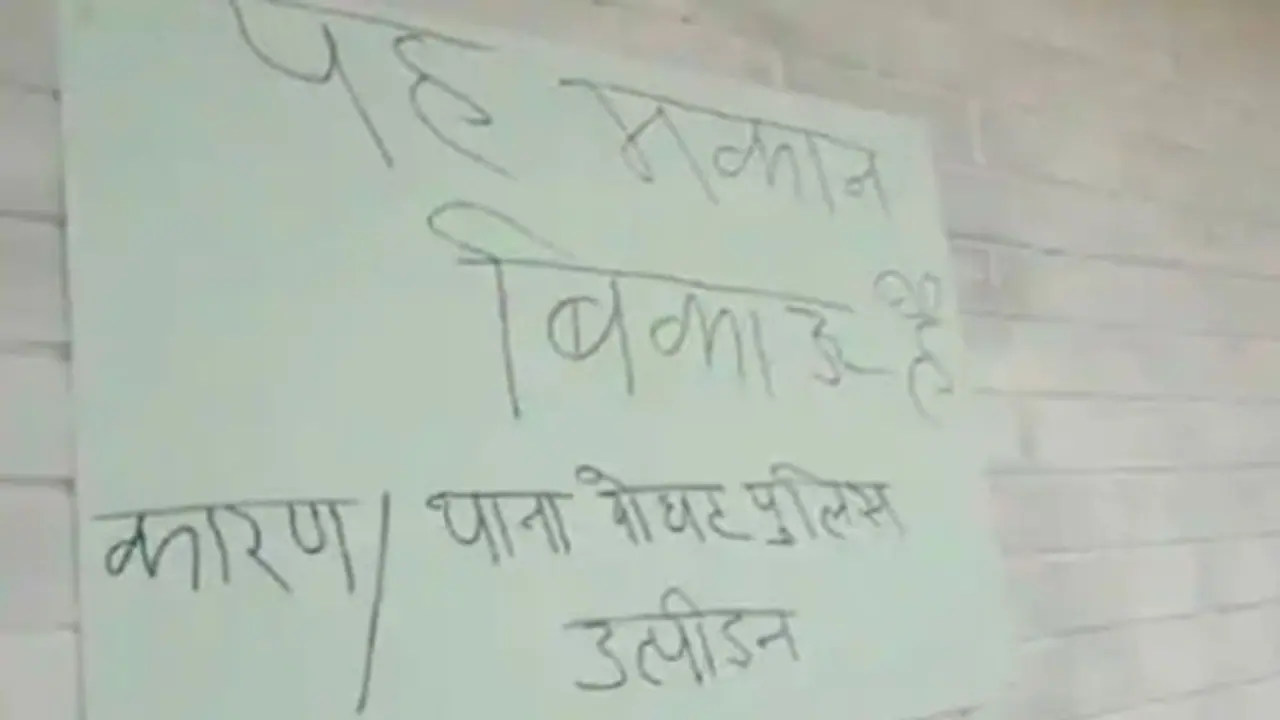 यह मकान
बिकाउ है
कारण / थाना पुलिस
उत्पीडन